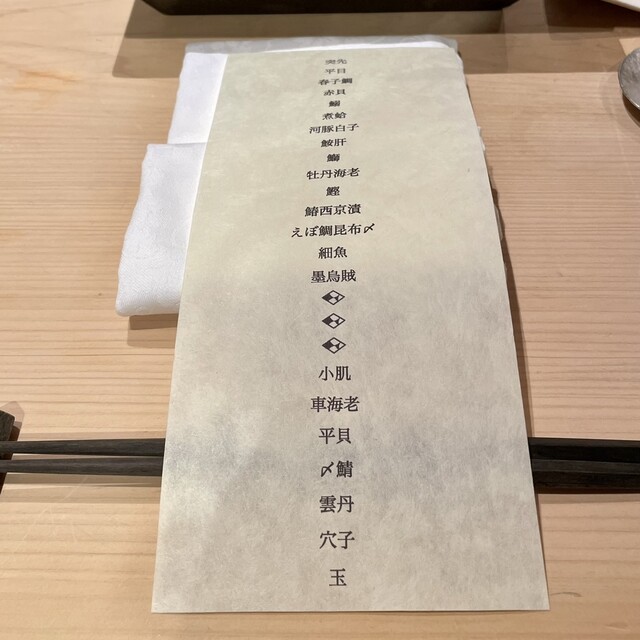 突先
平目
春子鯛
赤貝
煮蛤
河豚白子
鮟肝
牡丹海老
鰹
鰆西京漬
えぼ鯛昆布〆
細魚
墨烏賊
小肌
車海老
平貝
〆鯖
雲丹
穴子
玉